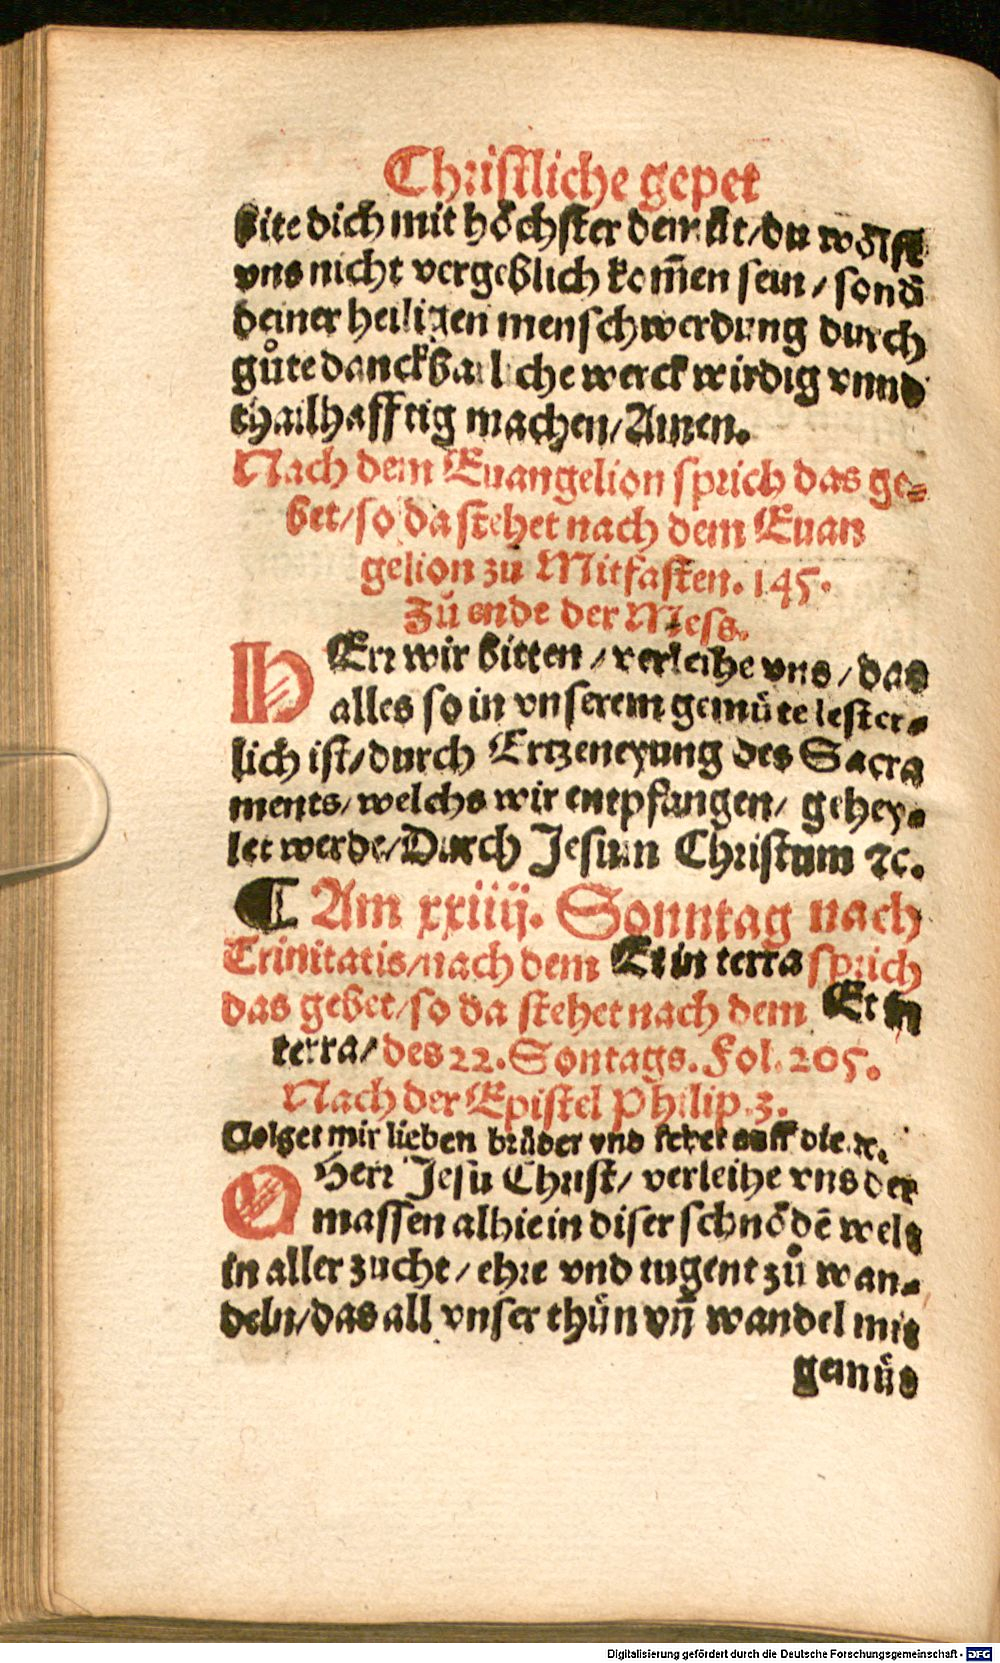 Christliche gepet
bite dich mit höchster demůt/du wölst
vns nicht vergeblich kom̃en sein/sond̃
deiner heiligen menschwerdung durch
gůte danckbarliche werck wirdig vnnd
thailhafftig machen/Amen.
Nach dem Euangelion sprich das ge-
bet/so da stehet nach dem Euan
gelion zu Mitfasten. 145.
Zů ende der Mess.
HErr wir bitten/verleihe vns/das
alles so in vnserem gemüte lester-
lich ist/durch Ertzeneyung des Sacra
ments/welchs wir entpfangen/gehey-
let werde/Durch Jesum Christum ⁊c.
¶ Am xxiiij. Sonntag nach
Trinitatis/nach dem Et in terra sprich
das gebet/so da stehet nach dem Et in
terra/des 22. Sontags. Fol. 205.
Nach der Epistel Philip. 3.
Volget mir lieben brüder vnd sehet auff die ⁊c.
O Herr Jesu Christ/verleihe vns der
massen alhie in diser schnödē welt
in aller zucht/ehre vnd tugent zů wan-
deln/das all vnser thün vñ wandel mit
gemüd
Digitalisierung gefördert durch die Deutsche Forschungsgemeinschaft - DFG